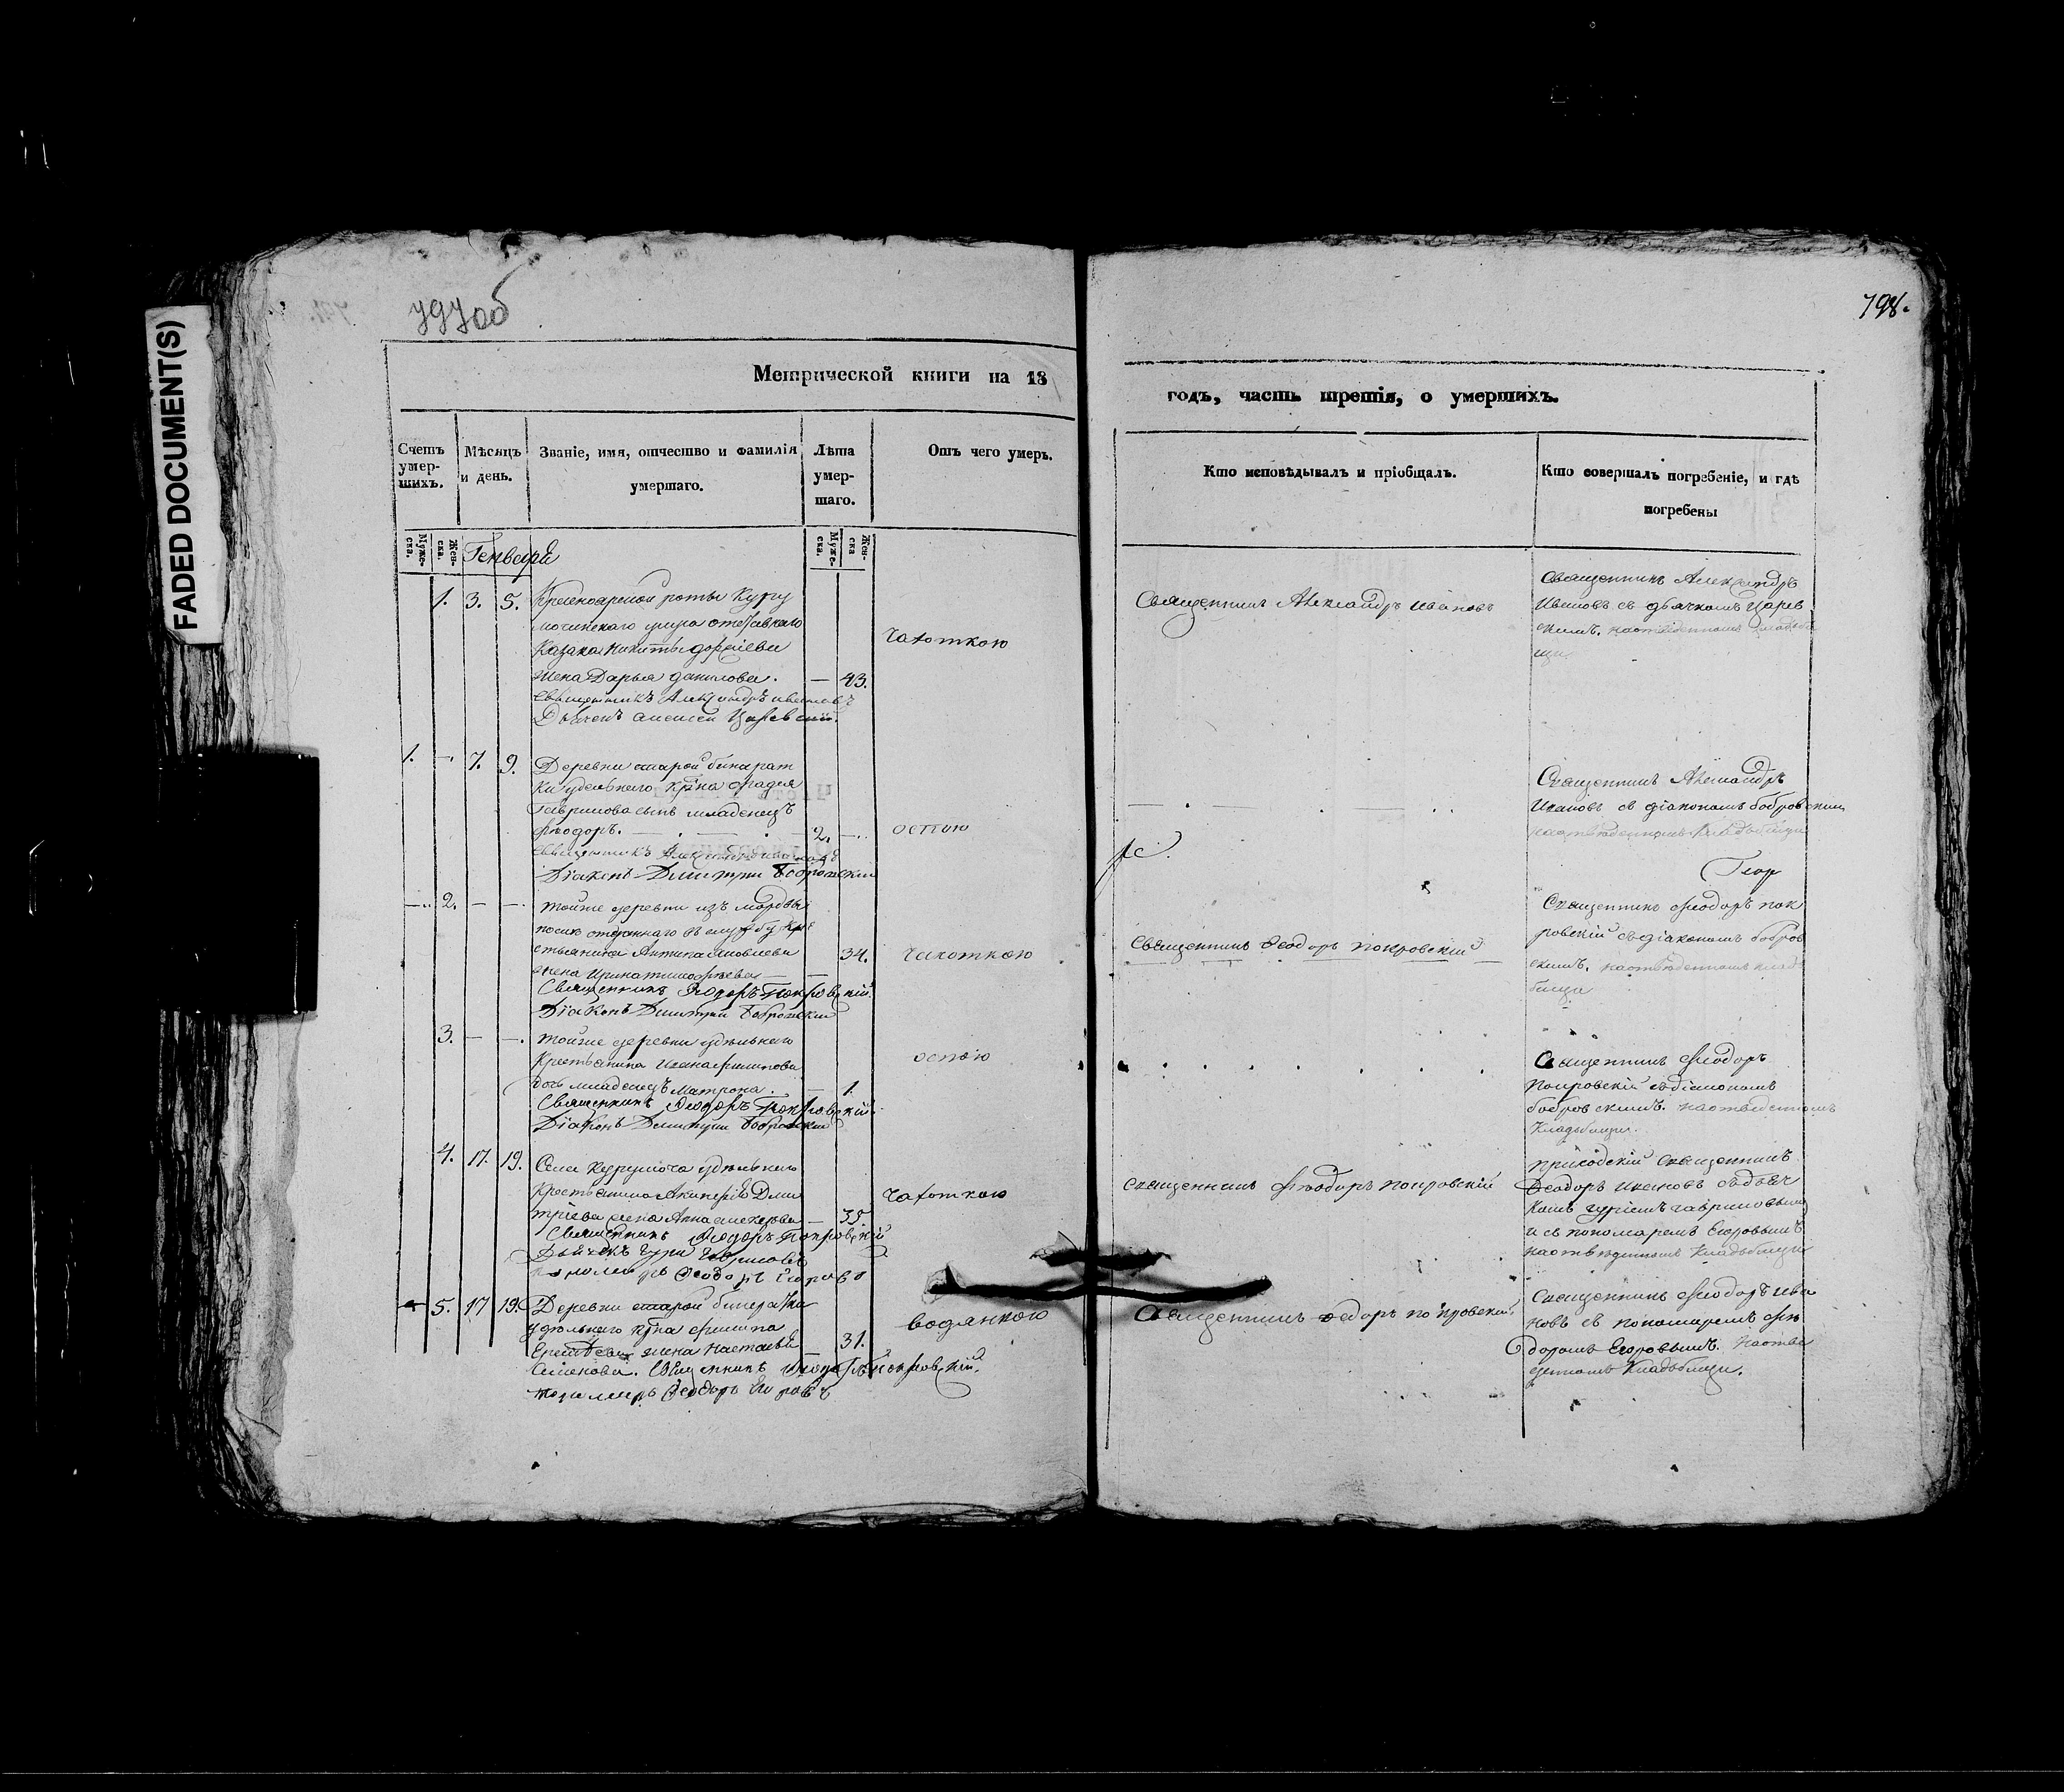 FADED DOCUMENT(S)
797об
798.
Метрической книги на 18
годъ, часть третія, о умершихъ.
Счетъ умер-шихъ.
Мѣсяцъ и день.
Званіе, имя, отчество и фамилія умершаго.
Лѣта умер-шаго.
Отъ чего умеръ.
Кто исповѣдывалъ и пріобщалъ.
Кто совершалъ погребеніе, и гдѣ погребены
Муже-ска.
Жен-ска.
Муже-ска.
Жен-ска
Генваря
1. 3. 5.
Красноярской роты Куру
мочинскаго отставнаго
Казака Никиты
жена Дарья данилова. — 43.
священникъ Александръ ивановъ
Дьячекъ алексей Царевскій
чахоткою
Священникъ Александръ ивановъ
священникъ Александръ
Ивановъ съ дьячкомъ Царев
скимъ. наотведенномъ кладби
щи
1. — 7. 9.
Деревни старой бинарат
ки удельнаго кр̃на
Гаврилова сынъ младенецъ
фѣодоръ. — 2. —
священникъ Александръ ивановъ
Діаконъ Димитри Бобровскии
оспою
Священникъ Александръ
Ивановъ съ діакономъ бобровскимъ
наотведенномъ Кладбищи
2. — —
тойже деревни изъ мордвы
отданнаго въ службу кре
стьянина Антипа Яковлева
жена Ирина тимофѣева — — 34.
Священникъ Ѳеодоръ Покровскій
Діаконъ Димитри Бобровскии
чахоткою
Священникъ Ѳеодоръ покровскій
Священникъ Фѣодоръ пок
ровскій съдіакономъ бобров
скимъ. наотведенномъ клад
бищи
3. — —
тойже деревни удельнаго
Крестьянина Ивана филипова
дочь младенецъ Матрона. — 1.
Священникъ Ѳеодоръ Покровскій
Діаконъ Димитри Бобровскии
оспою
Священникъ Фѣодоръ
Покровскій съдіакономъ
бобровскимъ. наотведенномъ
Кладбищи.
4. 17. 19.
Села Курумоча удѣльнаго
Крестьянина Дми
тріева жена Анна — 35
Священникъ Ѳеодоръ Покровскій
Дьячекъ Гури Гавриловъ
пономарь Ѳеодоръ Егоровъ
чахоткою
священникъ Фѣодоръ покровскій
приходскій священникъ
Ѳеодоръ Ивановъ съдьяч
комъ гуріемъ гавриловымъ
и съ пономаремъ Егоровымъ
наотведенномъ Кладбищи
5. 17 19.
Деревни старой бинератки
удѣльнаго кр̃на филипа
жена Настасья — 31.
Семенова. Священникъ Ѳеодоръ покровскій.
пономарь Ѳеодоръ Егоровъ
водянкою
Священникъ Ѳедоръ покровскій
Священникъ Фѣодоръ ива
новъ съ пономаремъ фѣ
доромъ Егоровымъ. наотве
денномъ Кладбищи.